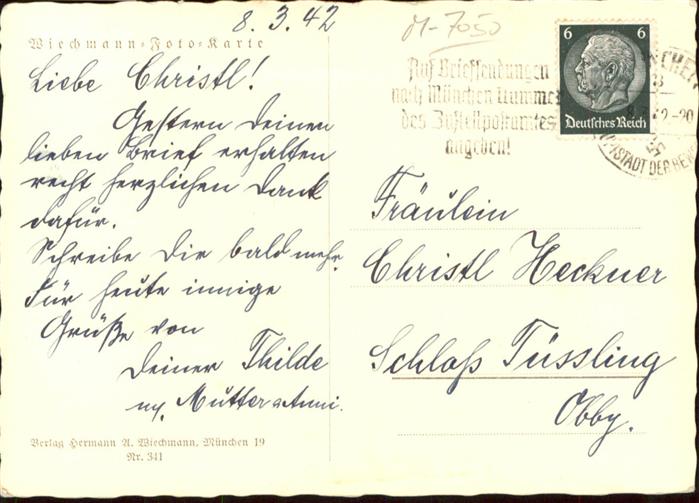 8.3.42
M-7050
Wiechmann-Foto-Karte
Liebe Christl!
Gestern Deinen
lieben Brief erhalten
recht herzlichen Dank
dafür.
Schreibe Dir bald mehr.
Für heute innige
Grüße von
Deiner Thilde
Mutter u. Anni.
Verlag Hermann A. Wiechmann, München 19
Nr. 341
Auf Briefsendungen
nach München Nummer
des Zustellpostamtes
angeben!
6 6
Deutsches Reich
STADT DER BEW
Fräulein
Christl Heckner
Schloß Tüssling
Obby.